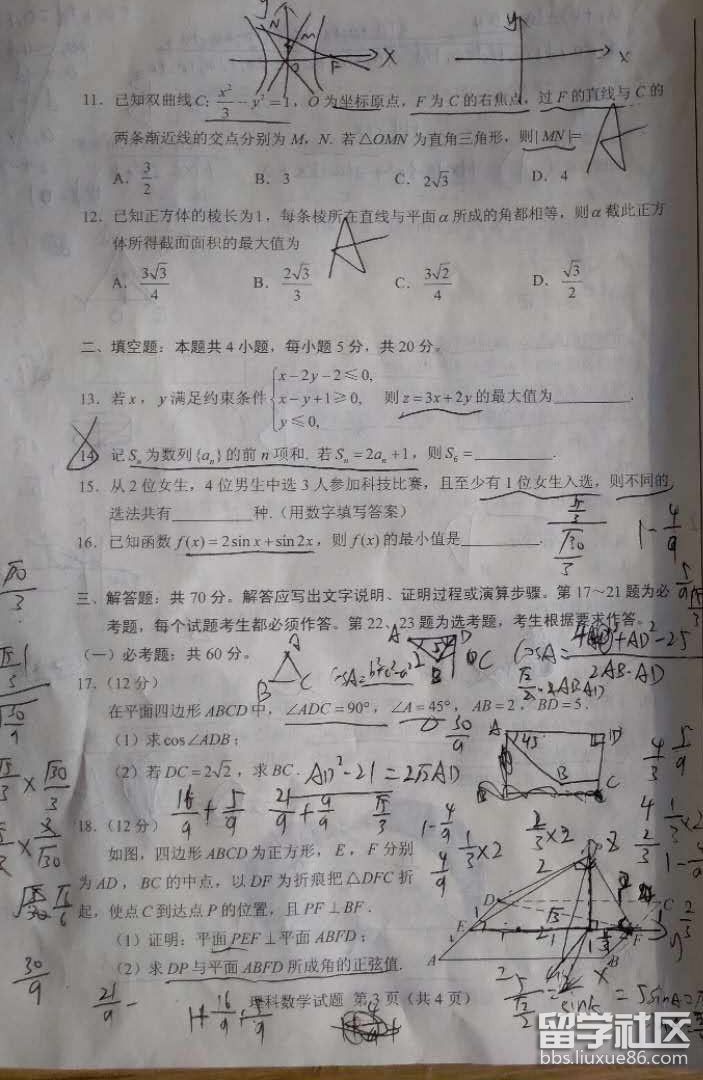 11. 已知双曲线C: x²/3 - y² = 1, O为坐标原点, F为C的右焦点, 过F的直线与C的
两条渐近线的交点分别为M, N. 若△OMN为直角三角形, 则|MN|=
A. 3/2 B. 3 C. 2√3 D. 4
12. 已知正方体的棱长为1, 每条棱所在直线与平面α所成的角都相等, 则α截此正方
体所得截面面积的最大值为
A. 3√3/4 B. 2√3/3 C. 3√2/4 D. √3/2
二、填空题: 本题共4小题, 每小题5分, 共20分。
13. 若x, y满足约束条件{x-2y-2≤0, x-y+1≥0, y≤0, 则z=3x+2y的最大值为________.
14. 记Sₙ为数列{aₙ}的前n项和. 若Sₙ=2aₙ+1, 则S₆=________.
15. 从2位女生, 4位男生中选3人参加科技比赛, 且至少有1位女生入选, 则不同的
选法共有________种.(用数字填写答案)
16. 已知函数f(x)=2sinx+sin2x, 则f(x)的最小值是________.
三、解答题: 共70分。解答应写出文字说明、证明过程或演算步骤。第17~21题为必
考题, 每个试题考生都必须作答。第22、23题为选考题, 考生根据要求作答。
(一)必考题: 共60分。
17.(12分)
在平面四边形ABCD中, ∠ADC=90°, ∠A=45°, AB=2, BD=5.
(1)求cos∠ADB;
(2)若DC=2√2, 求BC.
AD²-21=2√2AD
18.(12分)
如图, 四边形ABCD为正方形, E, F分别
为AD, BC的中点, 以DF为折痕把△DFC折
起, 使点C到达点P的位置, 且PF⊥BF.
(1)证明: 平面PEF⊥平面ABFD;
(2)求DP与平面ABFD所成角的正弦值.
理科数学试题 第3页(共4页)
留学社区
bbs.liuxue86.com